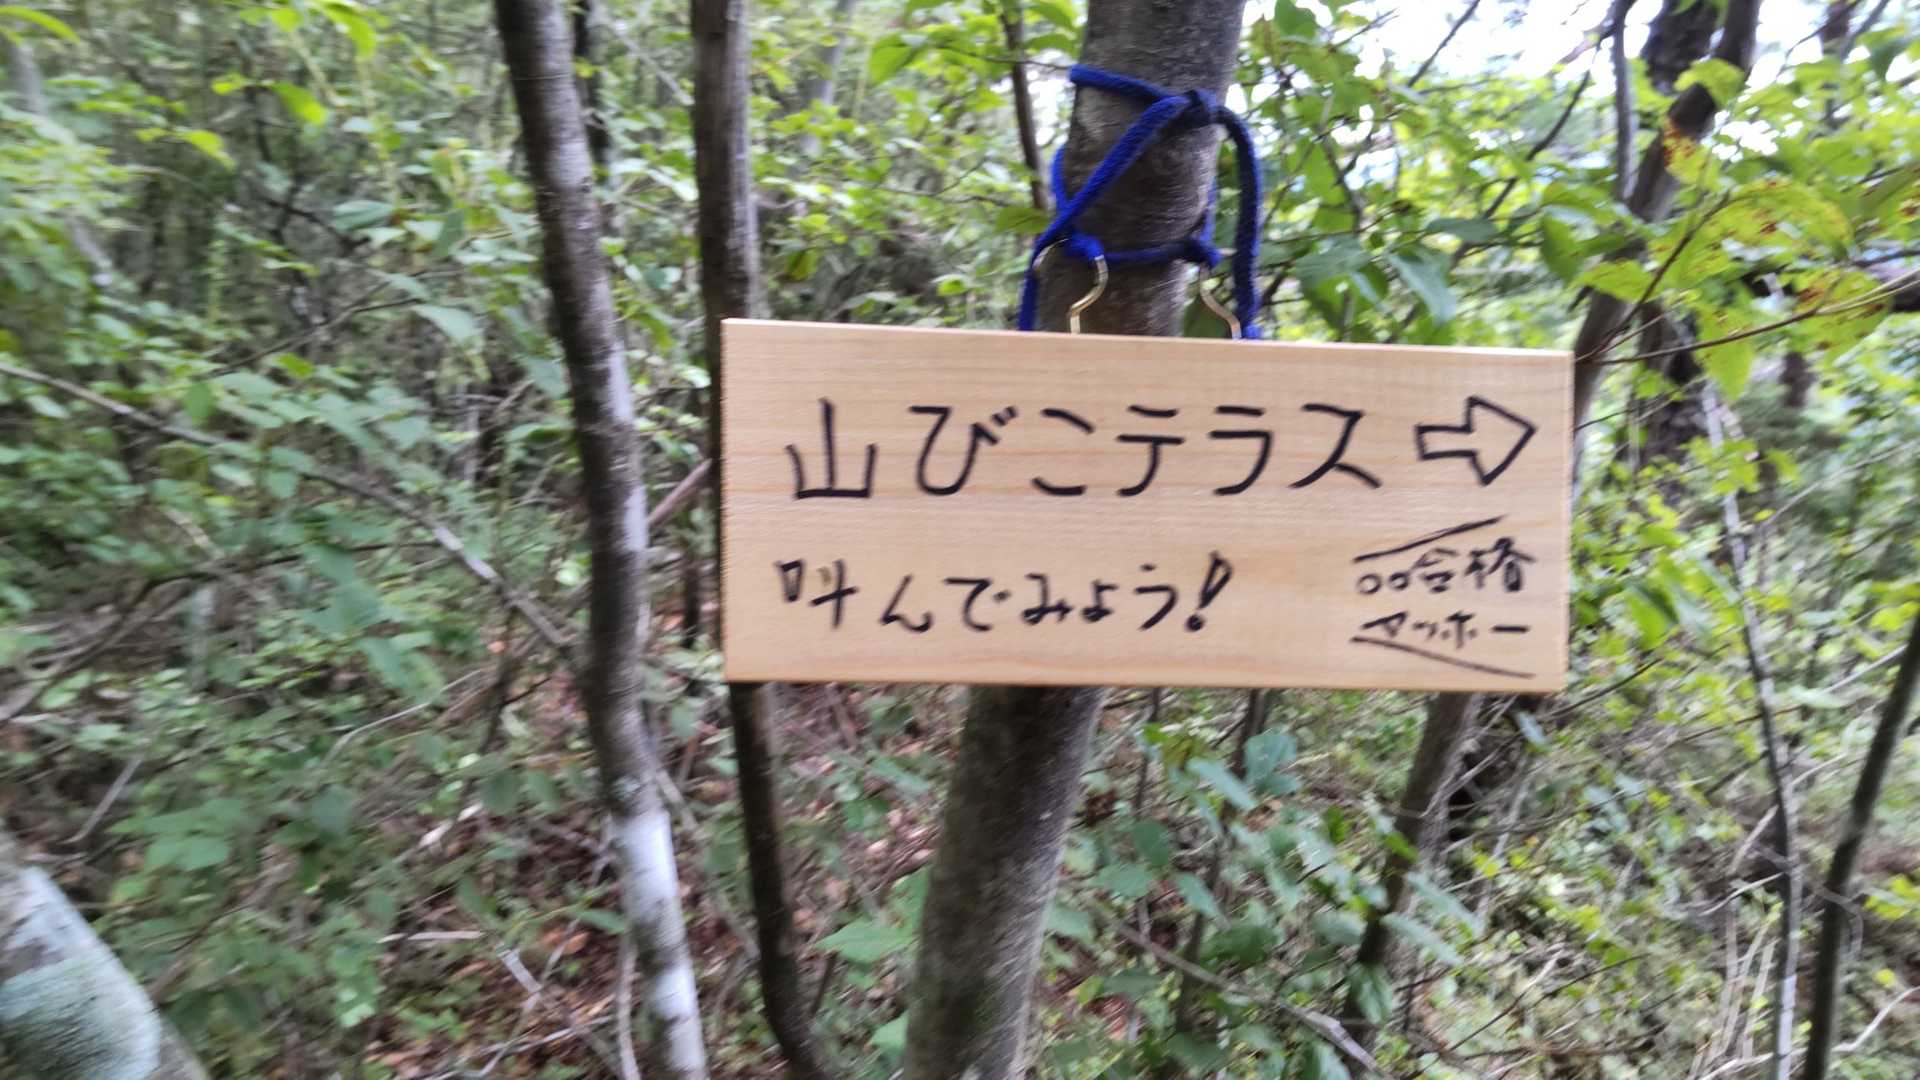 山びこテラス ⇨
叫んでみよう!
○○合格
ヤッホー